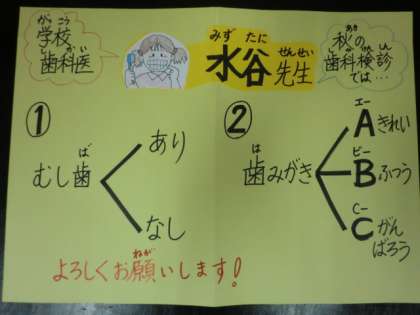 がっこう
学校
しかい
歯科医
みずたに せんせい
水谷先生
あき
秋の
しかけんしん
歯科検診
では…
①
ば
むし歯
あり
なし
②
は
歯みがき
エー
Aきれい
ビー
Bふつう
シー
Cがん
ばろう
ねが
よろしくお願いします!